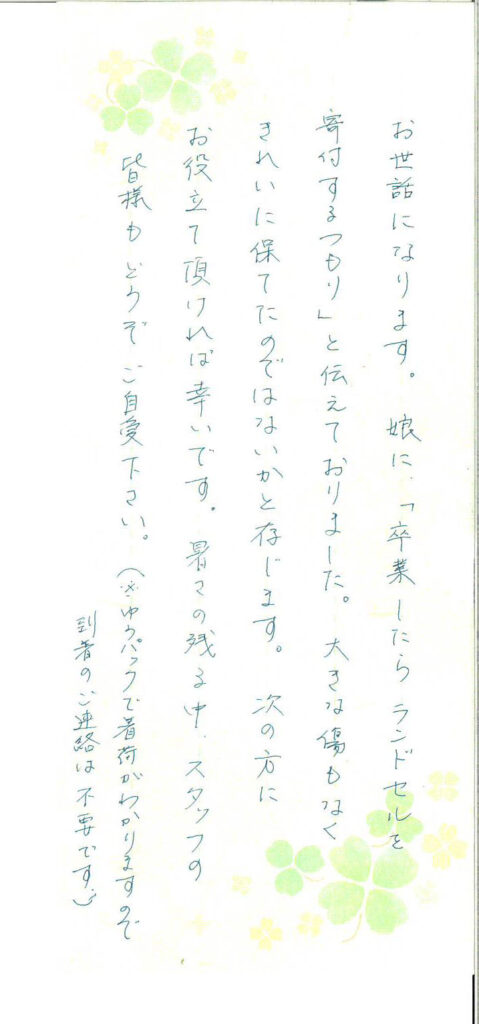 お世話になります。 娘に、「卒業したらランドセルを
寄付するつもり」と伝えておりました。 大きな傷もなく
きれいに保てたのではないかと存じます。 次の方に
お役立て頂ければ幸いです。 暑さの残る中、スタッフの
皆様もどうぞご自愛下さい。(※ゆうパックで着荷がわかりますので
到着のご連絡は不要です。)